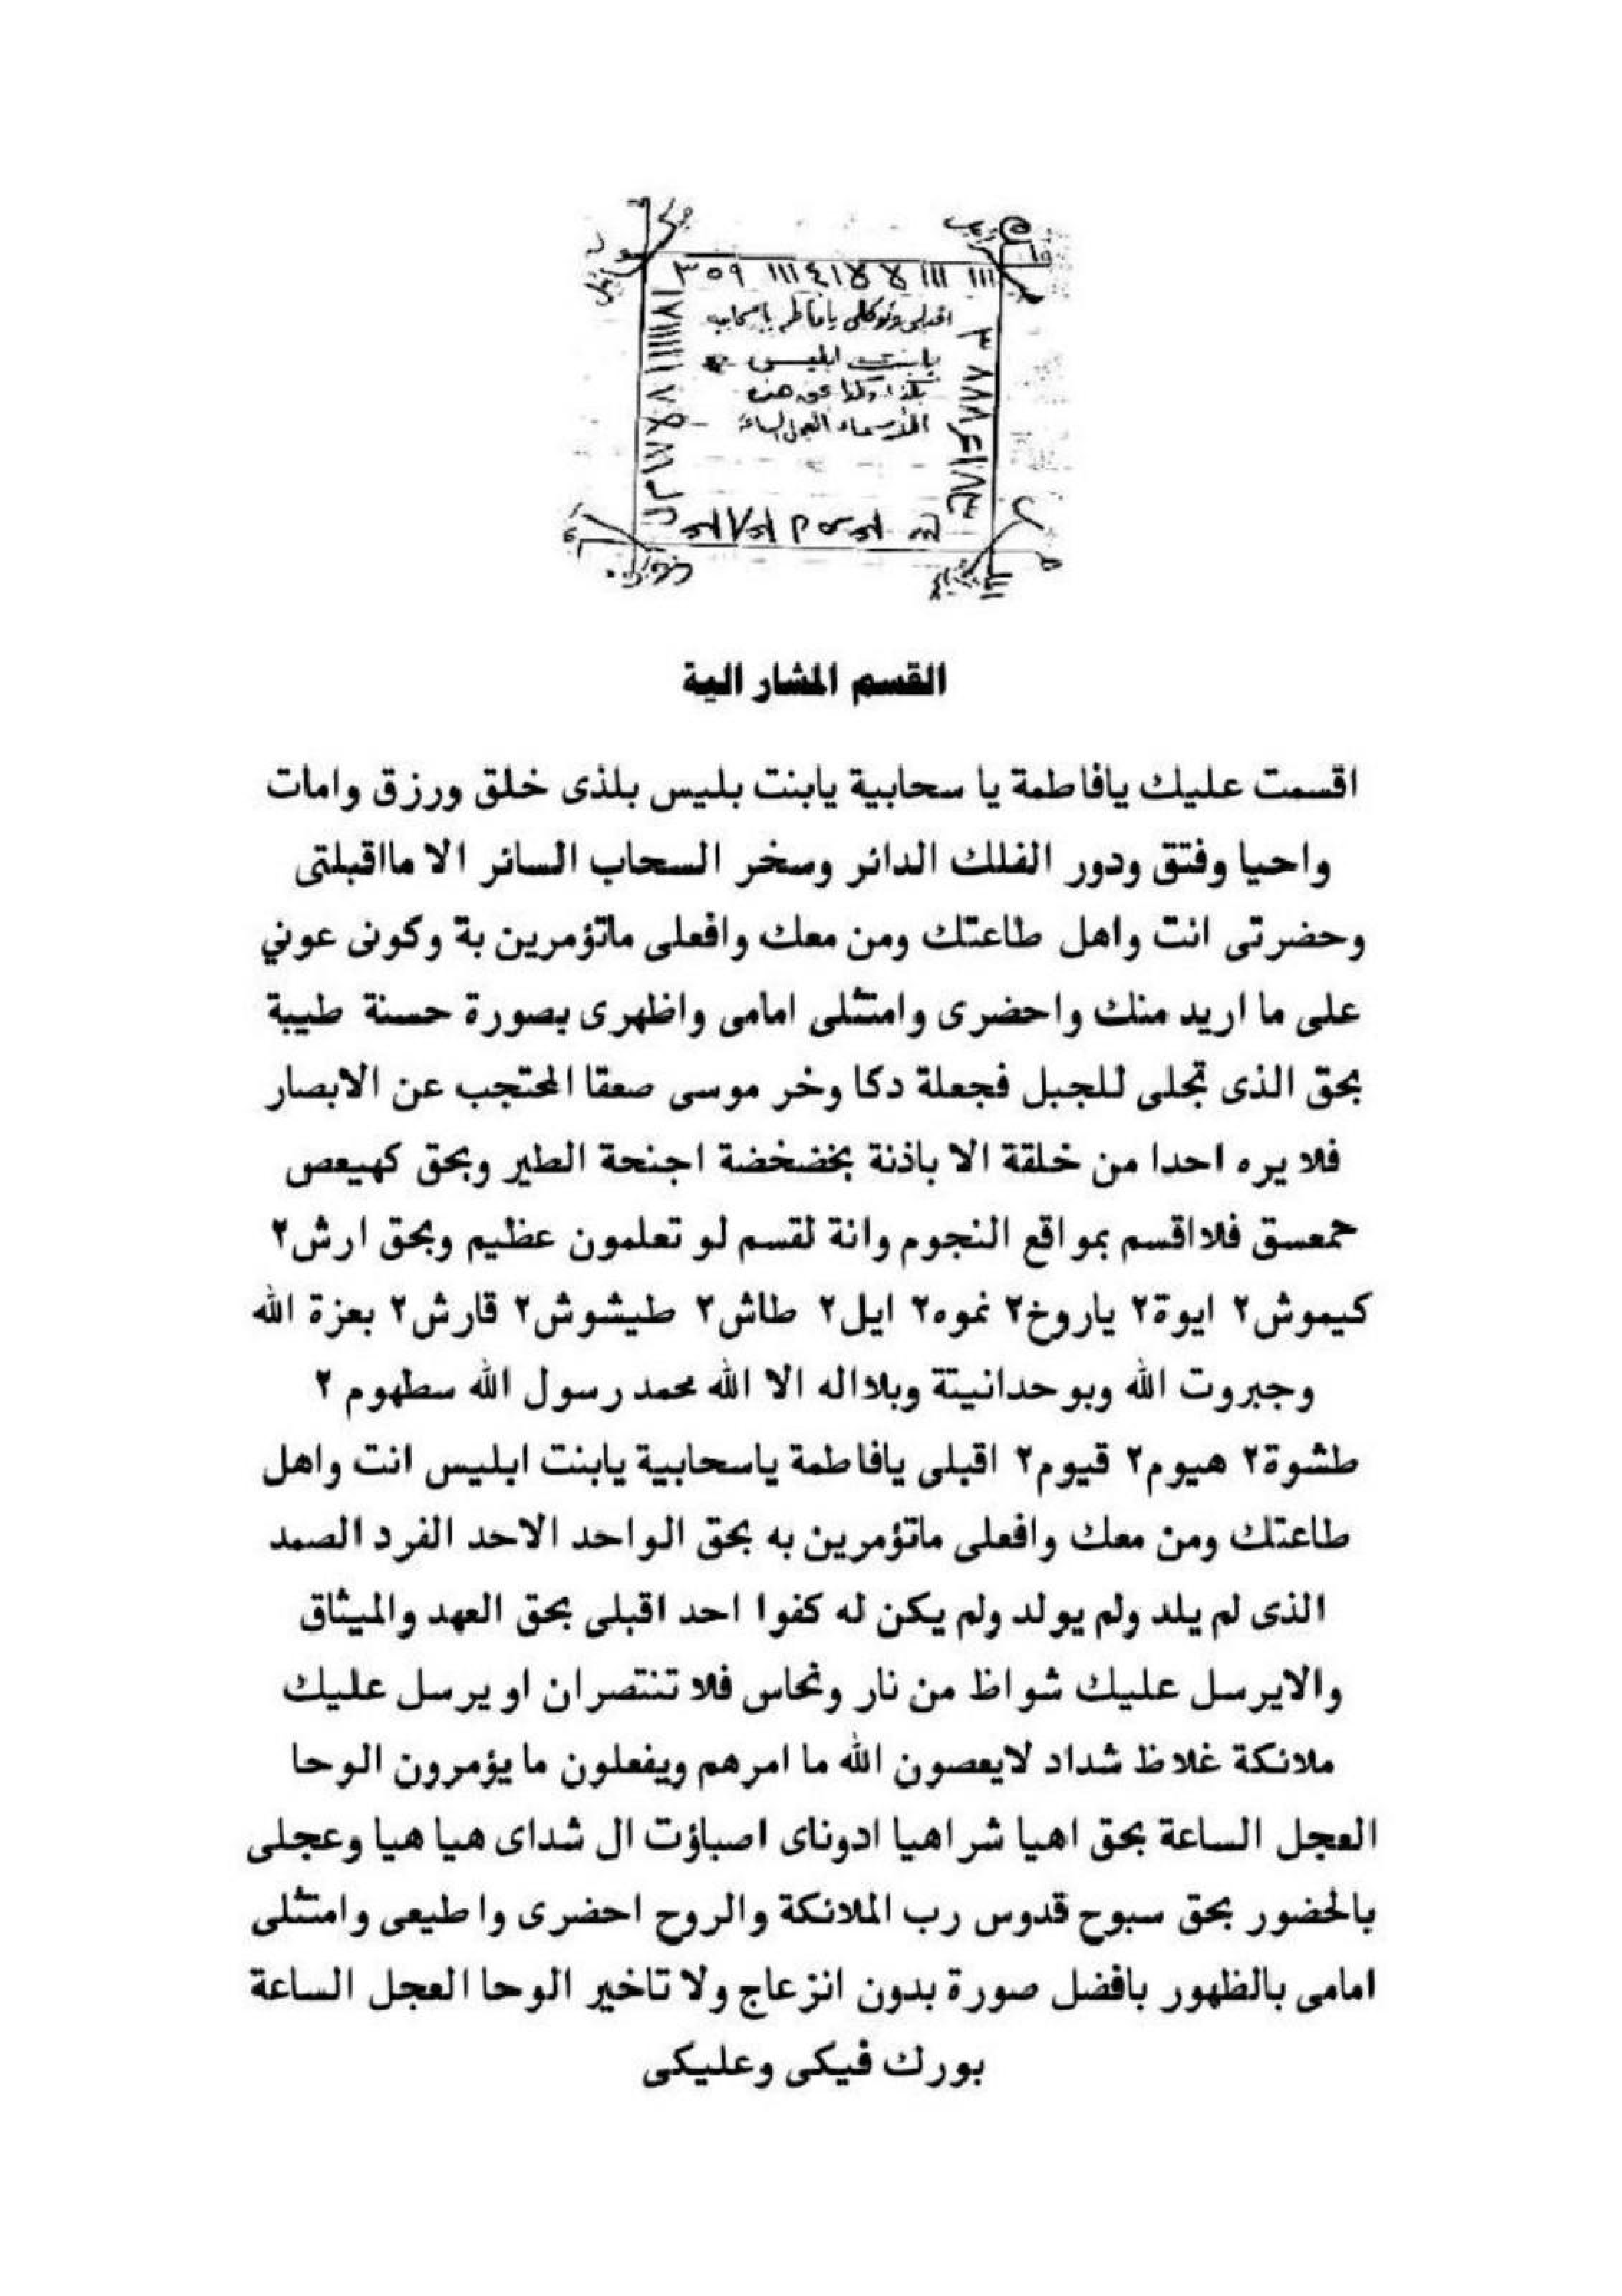 ٣٥٩ ١١١ ١٤
اقبلى وتوكلى يافاطمة ياسحابية
يابنت ابليس
بكذا وكذا بحق هذه
الاسماء العجل الساعة
القسم المشار الية
اقسمت عليك يافاطمة يا سحابية يابنت بليس بلذى خلق ورزق وامات
واحيا وفتق ودور الفلك الدائر وسخر السحاب السائر الا مااقبلتى
وحضرتى انت واهل طاعتك ومن معك وافعلى ماتؤمرين بة وكونى عوني
على ما اريد منك واحضرى وامتثلى امامى واظهرى بصورة حسنة طيبة
بحق الذى تجلى للجبل فجعلة دكا وخر موسى صعقا المحتجب عن الابصار
فلا يره احدا من خلقة الا باذنة بخضخضة اجنحة الطير وبحق كهيعص
حمعسق فلااقسم بمواقع النجوم وانة لقسم لو تعلمون عظيم وبحق ارش٢
كيموش٢ ايوة٢ ياروخ٢ نموه٢ ايل٢ طاش٢ طيشوش٢ قارش٢ بعزة الله
وجبروت الله وبوحدانيتة وبلااله الا الله محمد رسول الله سطهوم ٢
طشوة٢ هيوم٢ قيوم٢ اقبلى يافاطمة ياسحابية يابنت ابليس انت واهل
طاعتك ومن معك وافعلى ماتؤمرين به بحق الواحد الاحد الفرد الصمد
الذى لم يلد ولم يولد ولم يكن له كفوا احد اقبلى بحق العهد والميثاق
والايرسل عليك شواظ من نار ونحاس فلا تنتصران او يرسل عليك
ملائكة غلاظ شداد لايعصون الله ما امرهم ويفعلون ما يؤمرون الوحا
العجل الساعة بحق اهيا شراهيا ادوناى اصباؤت ال شداى هيا هيا وعجلى
بالحضور بحق سبوح قدوس رب الملائكة والروح احضرى واطيعى وامتثلى
امامى بالظهور بافضل صورة بدون انزعاج ولا تاخير الوحا العجل الساعة
بورك فيكى وعليكى